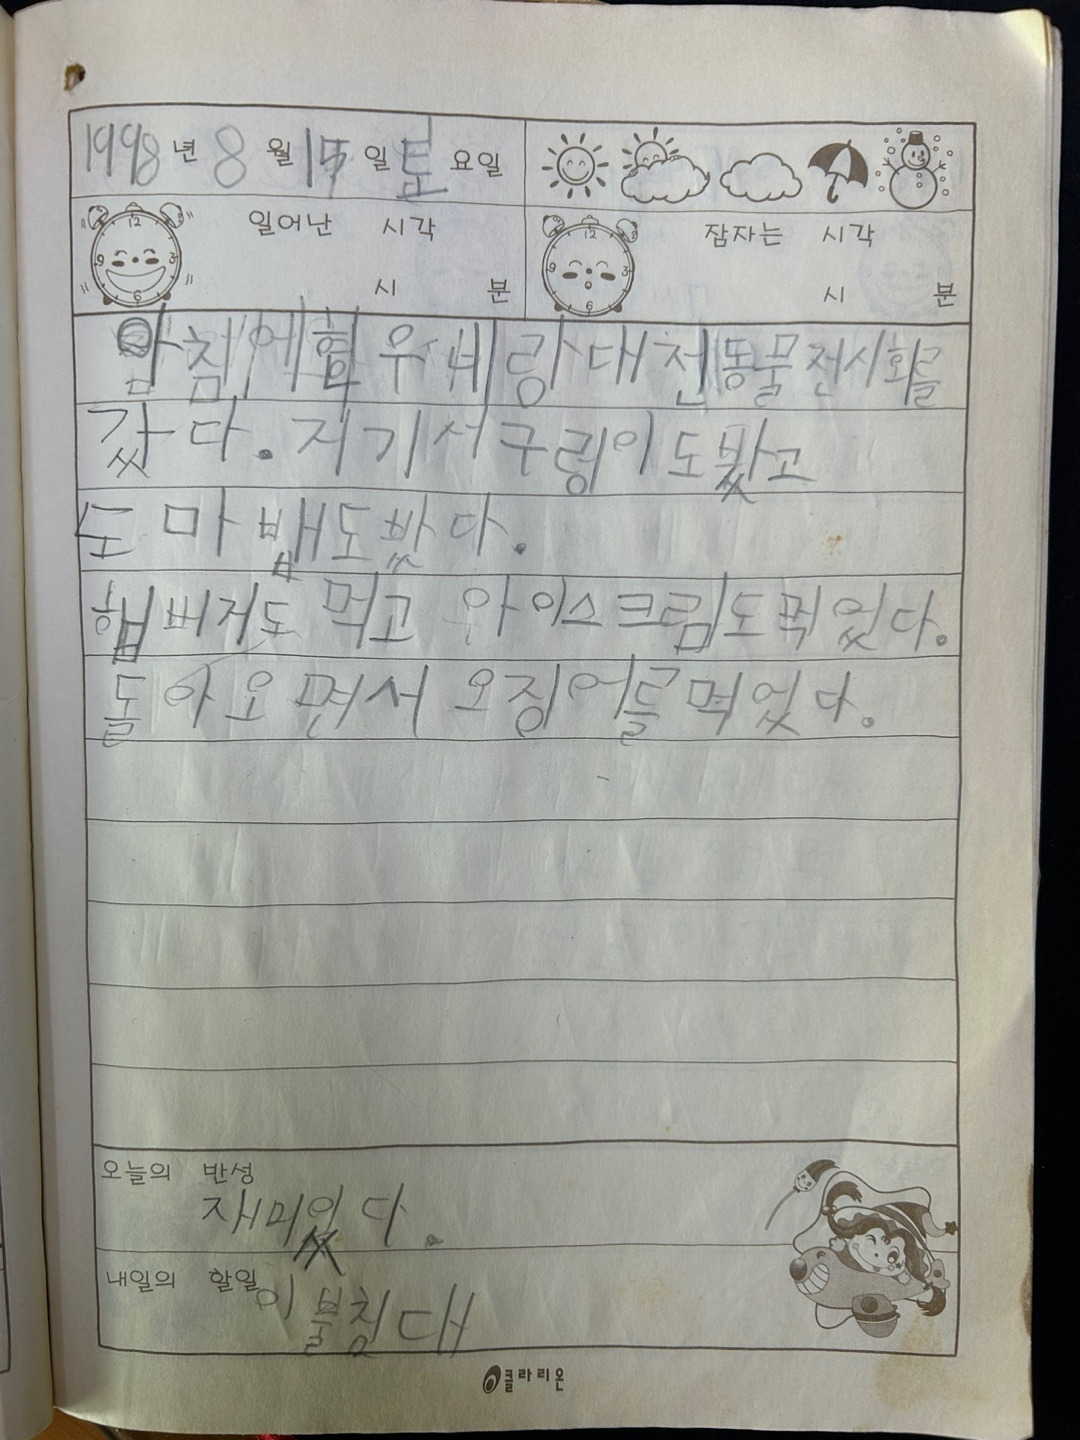 1998년 8월 15일 토요일
일어난 시각
시 분
잠자는 시각
시 분
아침에 혁우네랑 대전동물전시회를
갔다. 저기서 구렁이도 봤고
도마뱀도 봤다.
햄버거도 먹고 아이스크림도 먹었다.
돌아오면서 오징어를 먹었다.
오늘의 반성
재미있다.
내일의 할일
이불침대
클라리온